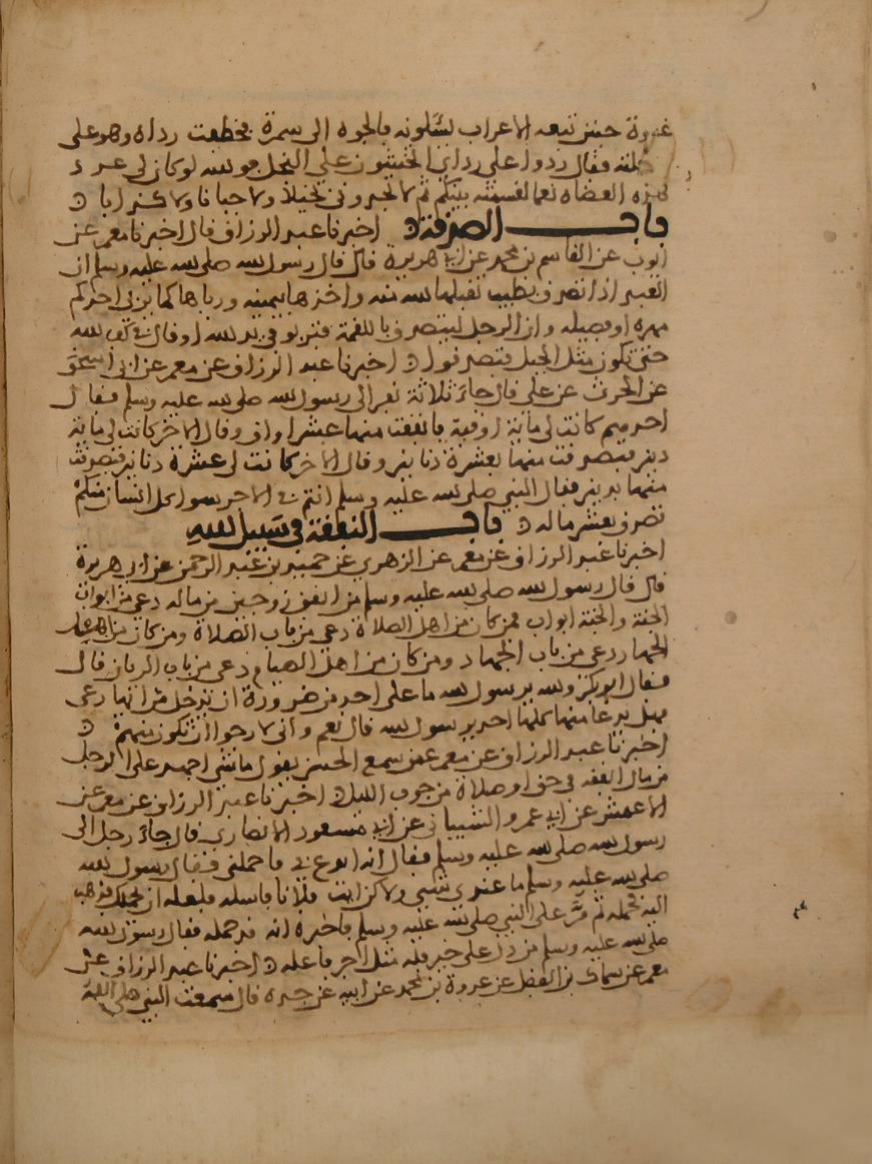 غزوة حنين تبعه الاعراب يسئلونه فالجوه الى سمرة فخطفت رداه وهو على
راحلته فقال ردوا على رداي اتخشون علي البخل فو لله لو كان لي عدد
هذه العضاه نعما لقسمته بينكم ثم لا تجدوني بخيلا ولا جبانا ولا كذابا
باب الصدقة اخبرنا عبد الرزاق قال اخبرنا معمر عن
ايوب عن القاسم بن محمد عن ابي هريرة قال قال رسول لله صلى لله عليه وسلم ان
العبد اذا تصدق بطيب تقبلها لله منه واخذها بيمينه ورباها كما يربي احدكم
مهره او فصيله وان الرجل ليتصدق باللقمة فتربو في يد لله او قال في كف لله
حتى تكون مثل الجبل فتصدقوا اخبرنا عبد الرزاق عن معمر عن ابي اسحق
عن الحرث عن علي قال جاء ثلاثة نفر الى رسول لله صلى لله عليه وسلم فقال
احدهم كانت لي ماية اوقية فانفقت منها عشرا واق وقال الاخر كانت لي ماية
دينر فتصدقت منها بعشرة دنانير وقال الاخر كانت لي عشرة دنانير فتصدقت
منها بدينر فقال النبي صلى لله عليه وسلم انتم في الاجر سوا كل انسان منكم
تصدق بعشر ماله باب النفقة في سبيل لله
اخبرنا عبد الرزاق عن معمر عن الزهري عن حميد بن عبد الرحمن عن ابي هريرة
قال قال رسول لله صلى لله عليه وسلم من انفق زوجين من ماله دعي من ابواب
الجنة وللجنة ابواب فمن كان من اهل الصلاة دعي من باب الصلاة ومن كان من اهل
الجهاد دعي من باب الجهاد ومن كان من اهل الصيام دعي من باب الريان قال
فقال ابو بكر ولله يرسول لله ما على احد من ضرورة ان يدخل من ايها دعي
فهل يدعا منها كلها احد يرسول لله قال نعم واني لارجوا ان تكون منهم
اخبرنا عبد الرزاق عن معمر عمن سمع الحسن يقول ما شي اجهد على الرجل
من مال انفقه في حق او صلاة من جوف الليل اخبرنا عبد الرزاق عن معمر عن
الاعمش عن ابي عمرو الشيباني عن ابي مسعود الانصاري قال جاء رجل الى
رسول لله صلى لله عليه وسلم فقال انه ابدع بي فاحملني فقال رسول لله
صلى لله عليه وسلم ما عندي شي ولاكن ايت فلانا فاسله فلعله ان يحملك فذهب
اليه فحمله ثم مر على النبي صلى لله عليه وسلم فاخبره انه قد حمله فقال رسول لله
صلى لله عليه وسلم من دل على خير فله مثل اجر فاعله اخبرنا عبد الرزاق عن
معمر عن سماك بن الفضل عن عروة بن محمد عن ابيه عن جده قال سمعت النبي صلى الله